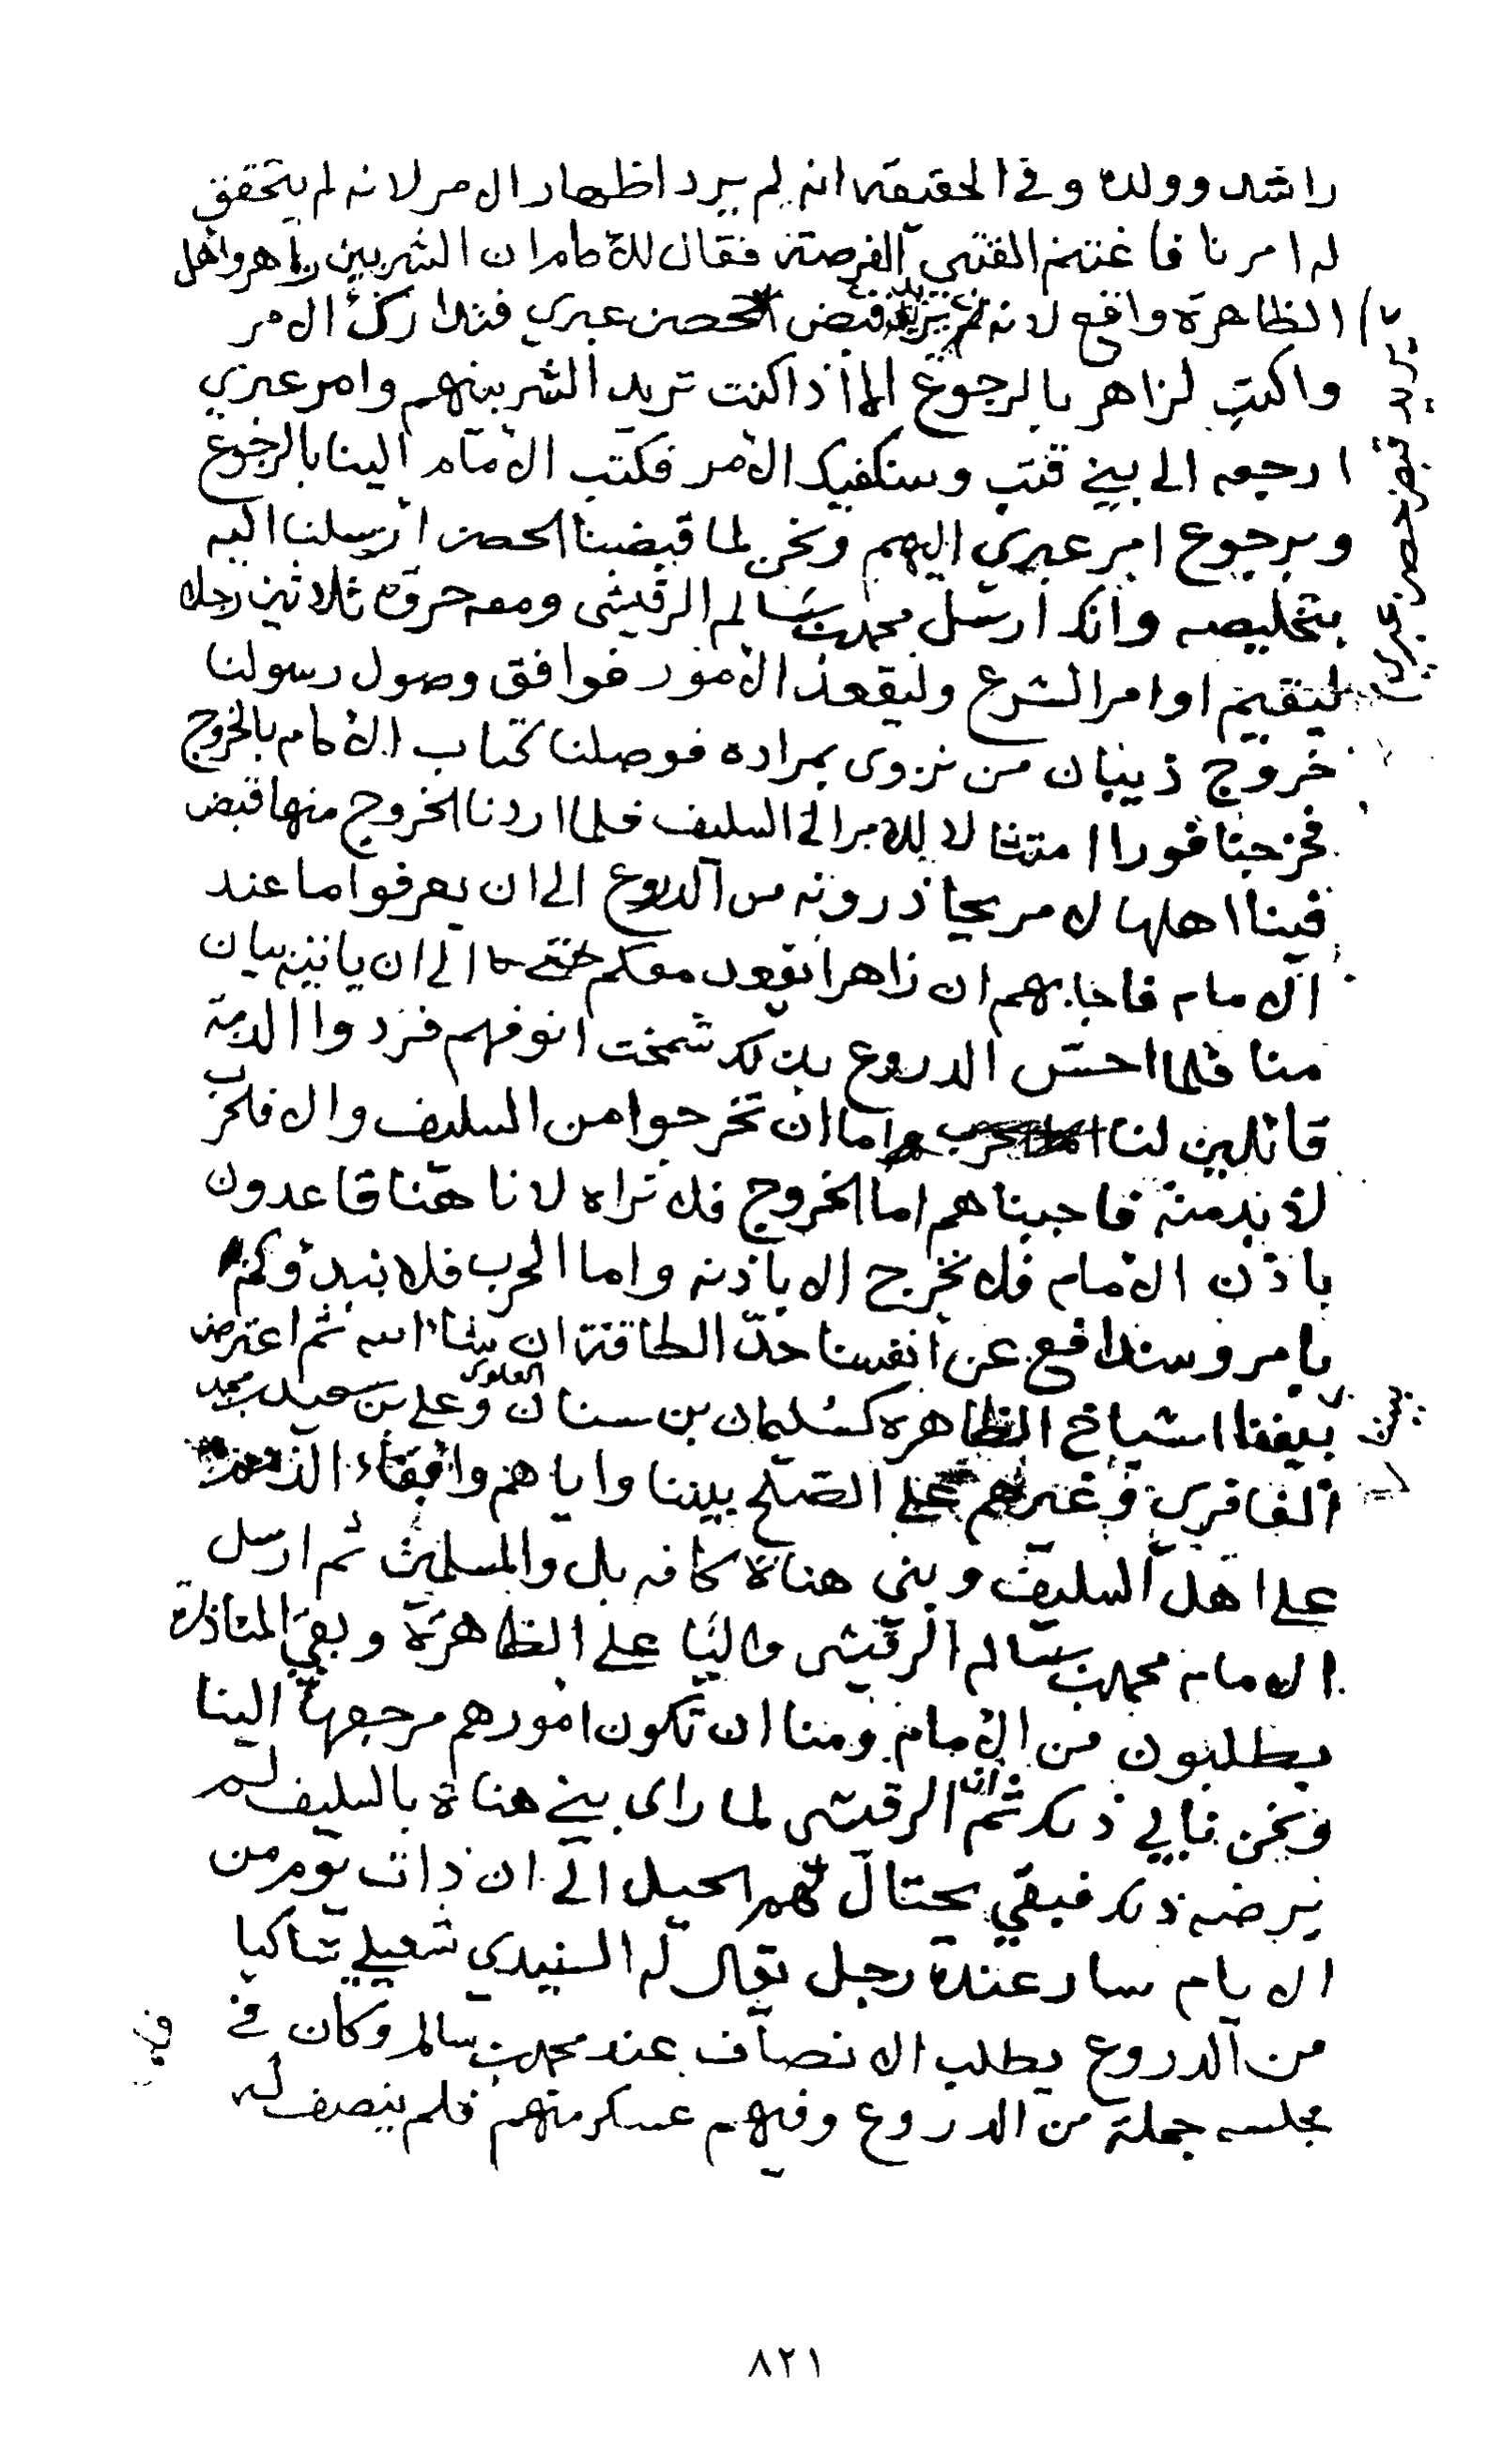 راشد وولده وفي الحقيقه انه لم يرد اظهار الامر لانه لم يتحقق
له امرنا فاغتنم الفتى الفرصة فقال للامام ان الشر بين زاهر واهل
الظاهرة واقع لانه قبض الحصن عبري فتدارك الامر
واكتب لزاهر بالرجوع اذا كنت تريد الشر بينهم وامر عبري
ارجعه الى بني قتب وسنكفيك الامر فكتب الامام الينا بالرجوع
وبرجوع امر عبري اليهم ونحن لما قبضنا الحصن ارسلنا اليه
بتخليصه وانك ارسل محمد بن سالم الرقيشي ومعه ثلاثين رجلا
ليقيم اوامر الشرع وليقعد الامور فوافق وصول رسولنا
خروج ذيبان من نزوى بمراده فوصلنا كتاب الامام بالخروج
فخرجنا فورا امتثالا للامر الى السليف فلما اردنا الخروج منها قبض
فينا اهلها لامر يحاذرونه من الدروع الى ان يعرفوا ما عند
الامام فاجابهم ان زاهرا يقعد معكم الى ان ياتيه بيان
منا فلما احس الدروع بذلك شمخت انوفهم فردوا الذمة
قائلين لنا اما ان تخرجوا من السليف والا فالحرب
لا بد منه فاجبناهم اما الخروج فلا تراه لانا هنا قاعدون
باذن الامام فلا نخرج الا باذنه واما الحرب فلا نبدؤكم
بامر وسندافع عن انفسنا حد الطاقة ان شاء الله ثم اعترض
بيننا اشياخ الظاهرة كسليمان بن سنان العلوي وعلي بن سعيد بن محمد
الغافري وغيرهم على الصلح بيننا واياهم وابقاء
على اهل السليف وبني هناة كافه بل والمسلمين ثم ارسل
الامام محمد بن سالم الرقيشي واليا على الظاهرة وبقي المناذرة
يطلبون من الامام ومنا ان تكون امورهم مرجعها الينا
ونحن نابي ذلك ثم ان الرقيشي لما راى بني هناة بالسليف لم
يرضه ذلك فبقي يحتال لهم الحيل الى ان ذات يوم من
الايام سار عنده رجل يقال له السنيدي شعيلي شاكيا
من الدروع يطلب الانصاف عند محمد بن سالم وكان في
مجلسه جملة من الدروع وفيهم عسكر منهم فلم ينصف له
٨٢١